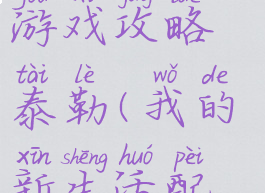 yóu xì gōng lüè
游戏攻略
tài lè wǒ de
泰勒(我的
xīn shēng huó pèi
新生活配